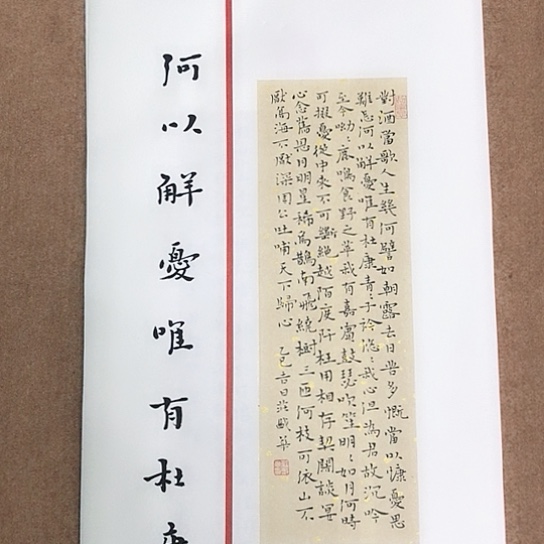 對酒當歌人生幾何譬如朝露去日苦多慨當以慷憂思
難忘何以解憂唯有杜康青〻子衿悠〻我心但為君故沉吟
至今呦〻鹿鳴食野之苹我有嘉賓鼓瑟吹笙明〻如月何時
可掇憂從中來不可斷絕越陌度阡枉用相存契闊談宴
心念舊恩月明星稀烏鵲南飛繞樹三匝何枝可依山不
厭高海不厭深周公吐哺天下歸心 乙巳吉日
何以解憂唯有杜